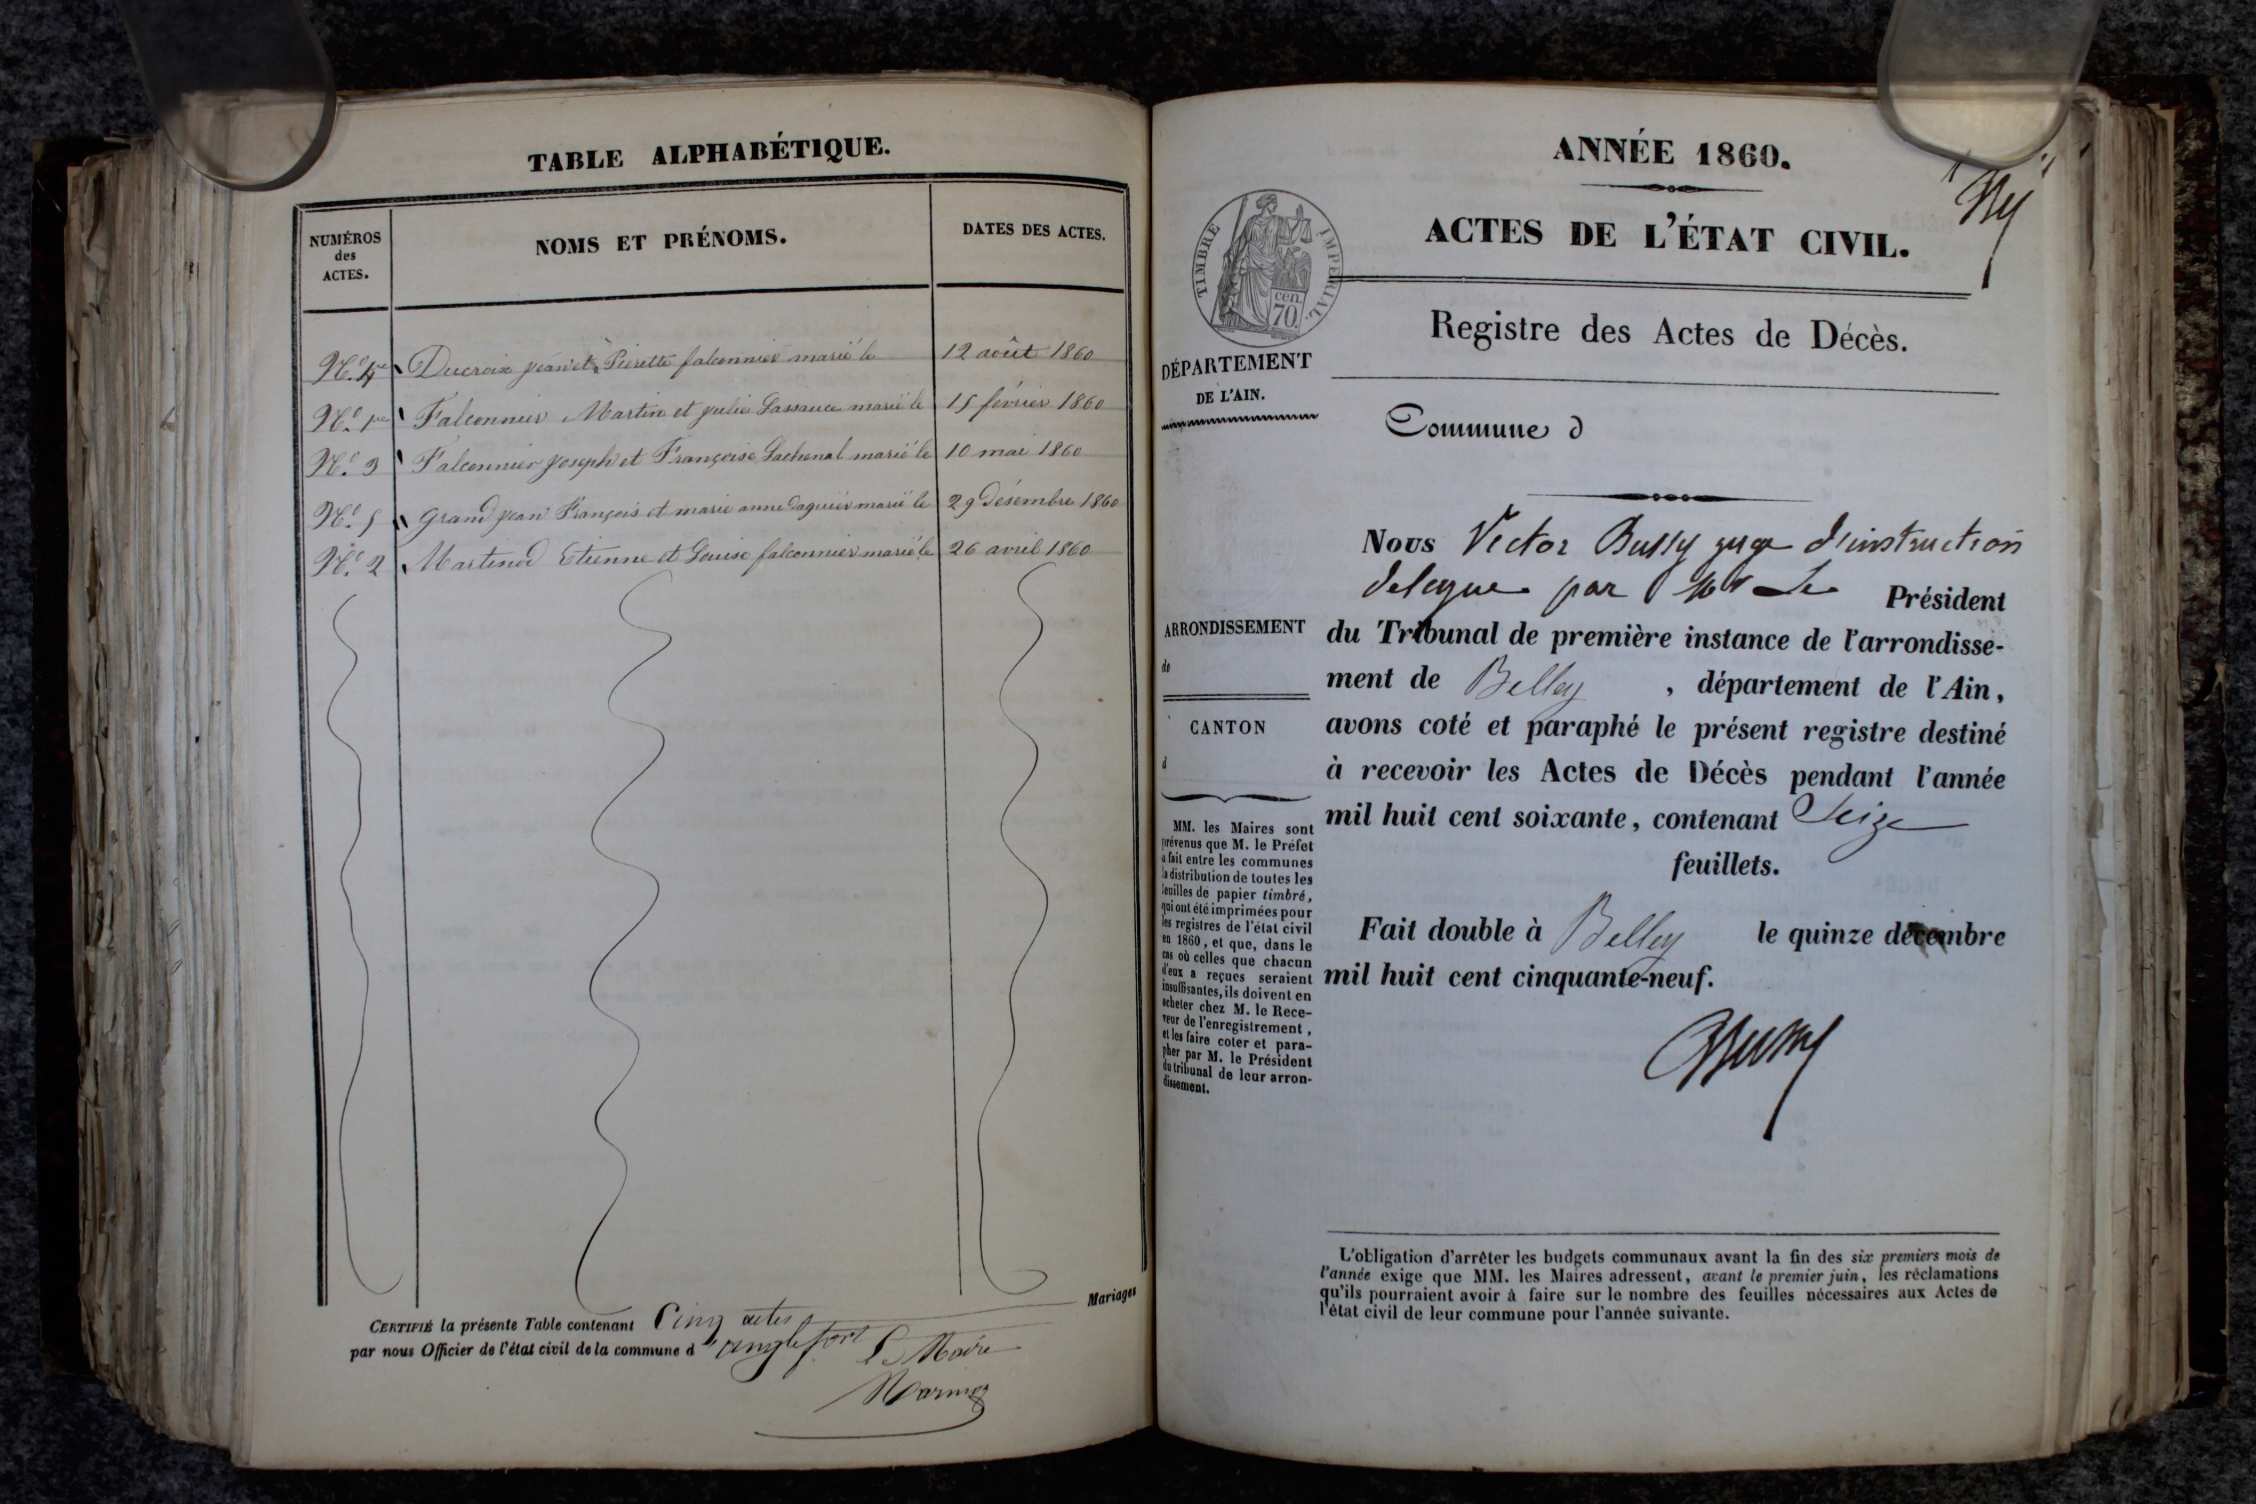 TABLE ALPHABÉTIQUE.
NUMÉROS
des
ACTES.
NOMS ET PRÉNOMS.
DATES DES ACTES.
N.º 4 Ducroix jean et Pierette falconnier marié le 12 août 1860
N.º 1 Falconnier Martin et julie Lassauce marié le 15 février 1860
N.º 3 Falconnier joseph et Françoise Lachenal marié le 10 mai 1860
N.º 5 Grand jean François et marie anne marié le 29 Désembre 1860
N.º 2 Martinod Etienne et Louise falconnier marié le 26 avril 1860
Mariages
CERTIFIÉ la présente Table contenant Cinq actes
par nous Officier de l'état civil de la commune d'anglefort Le Maire
ANNÉE 1860.
ACTES DE L'ÉTAT CIVIL.
TIMBRE IMPÉRIAL.
cen.
70.
Registre des Actes de Décès.
DÉPARTEMENT
DE L'AIN.
Commune d
Nous Victor Bussy juge d'instruction
delegue par Mr Le Président
du Tribunal de première instance de l'arrondisse-
ment de Belley, département de l'Ain,
avons coté et paraphé le présent registre destiné
à recevoir les Actes de Décès pendant l'année
mil huit cent soixante, contenant Seize
feuillets.
Fait double à Belley le quinze décembre
mil huit cent cinquante-neuf.
Bussy
ARRONDISSEMENT
de
CANTON
d
MM. les Maires sont
prévenus que M. le Préfet
a fait entre les communes
la distribution de toutes les
feuilles de papier timbré,
qui ont été imprimées pour
les registres de l'état civil
en 1860, et que, dans le
cas où celles que chacun
d'eux a reçues seraient
insuffisantes, ils doivent en
acheter chez M. le Rece-
veur de l'enregistrement,
et les faire coter et para-
pher par M. le Président
du tribunal de leur arron-
dissement.
L'obligation d'arrêter les budgets communaux avant la fin des six premiers mois de
l'année exige que MM. les Maires adressent, avant le premier juin, les réclamations
qu'ils pourraient avoir à faire sur le nombre des feuilles nécessaires aux Actes de
l'état civil de leur commune pour l'année suivante.